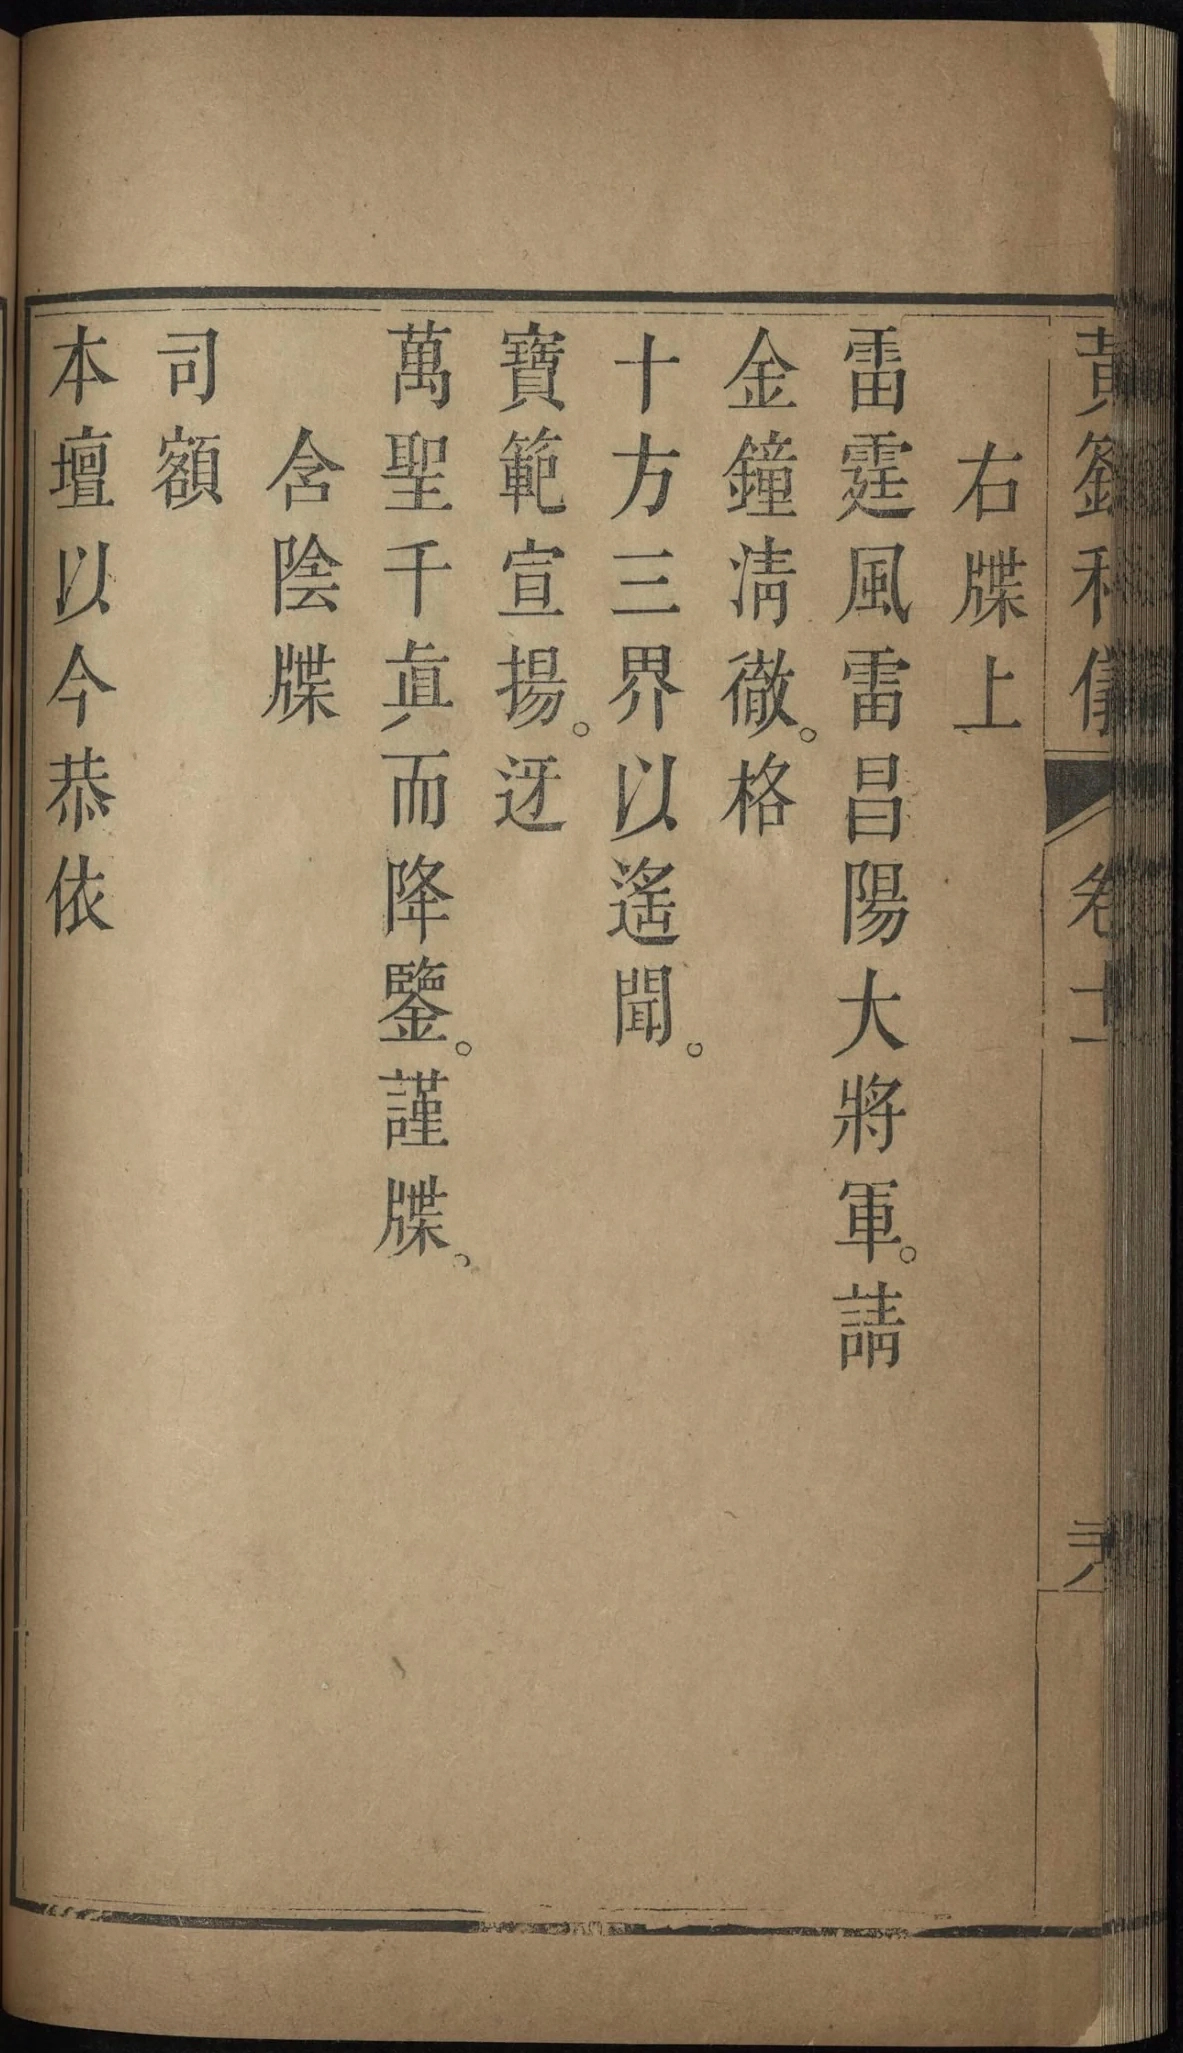 右牒上
雷霆風雷昌陽大將軍。請
金鐘淸徹。格
十方三界以遙聞。
寶範宣揚。迓
萬聖千眞而降鑒。謹牒。
含陰牒
司額
本壇以今恭依